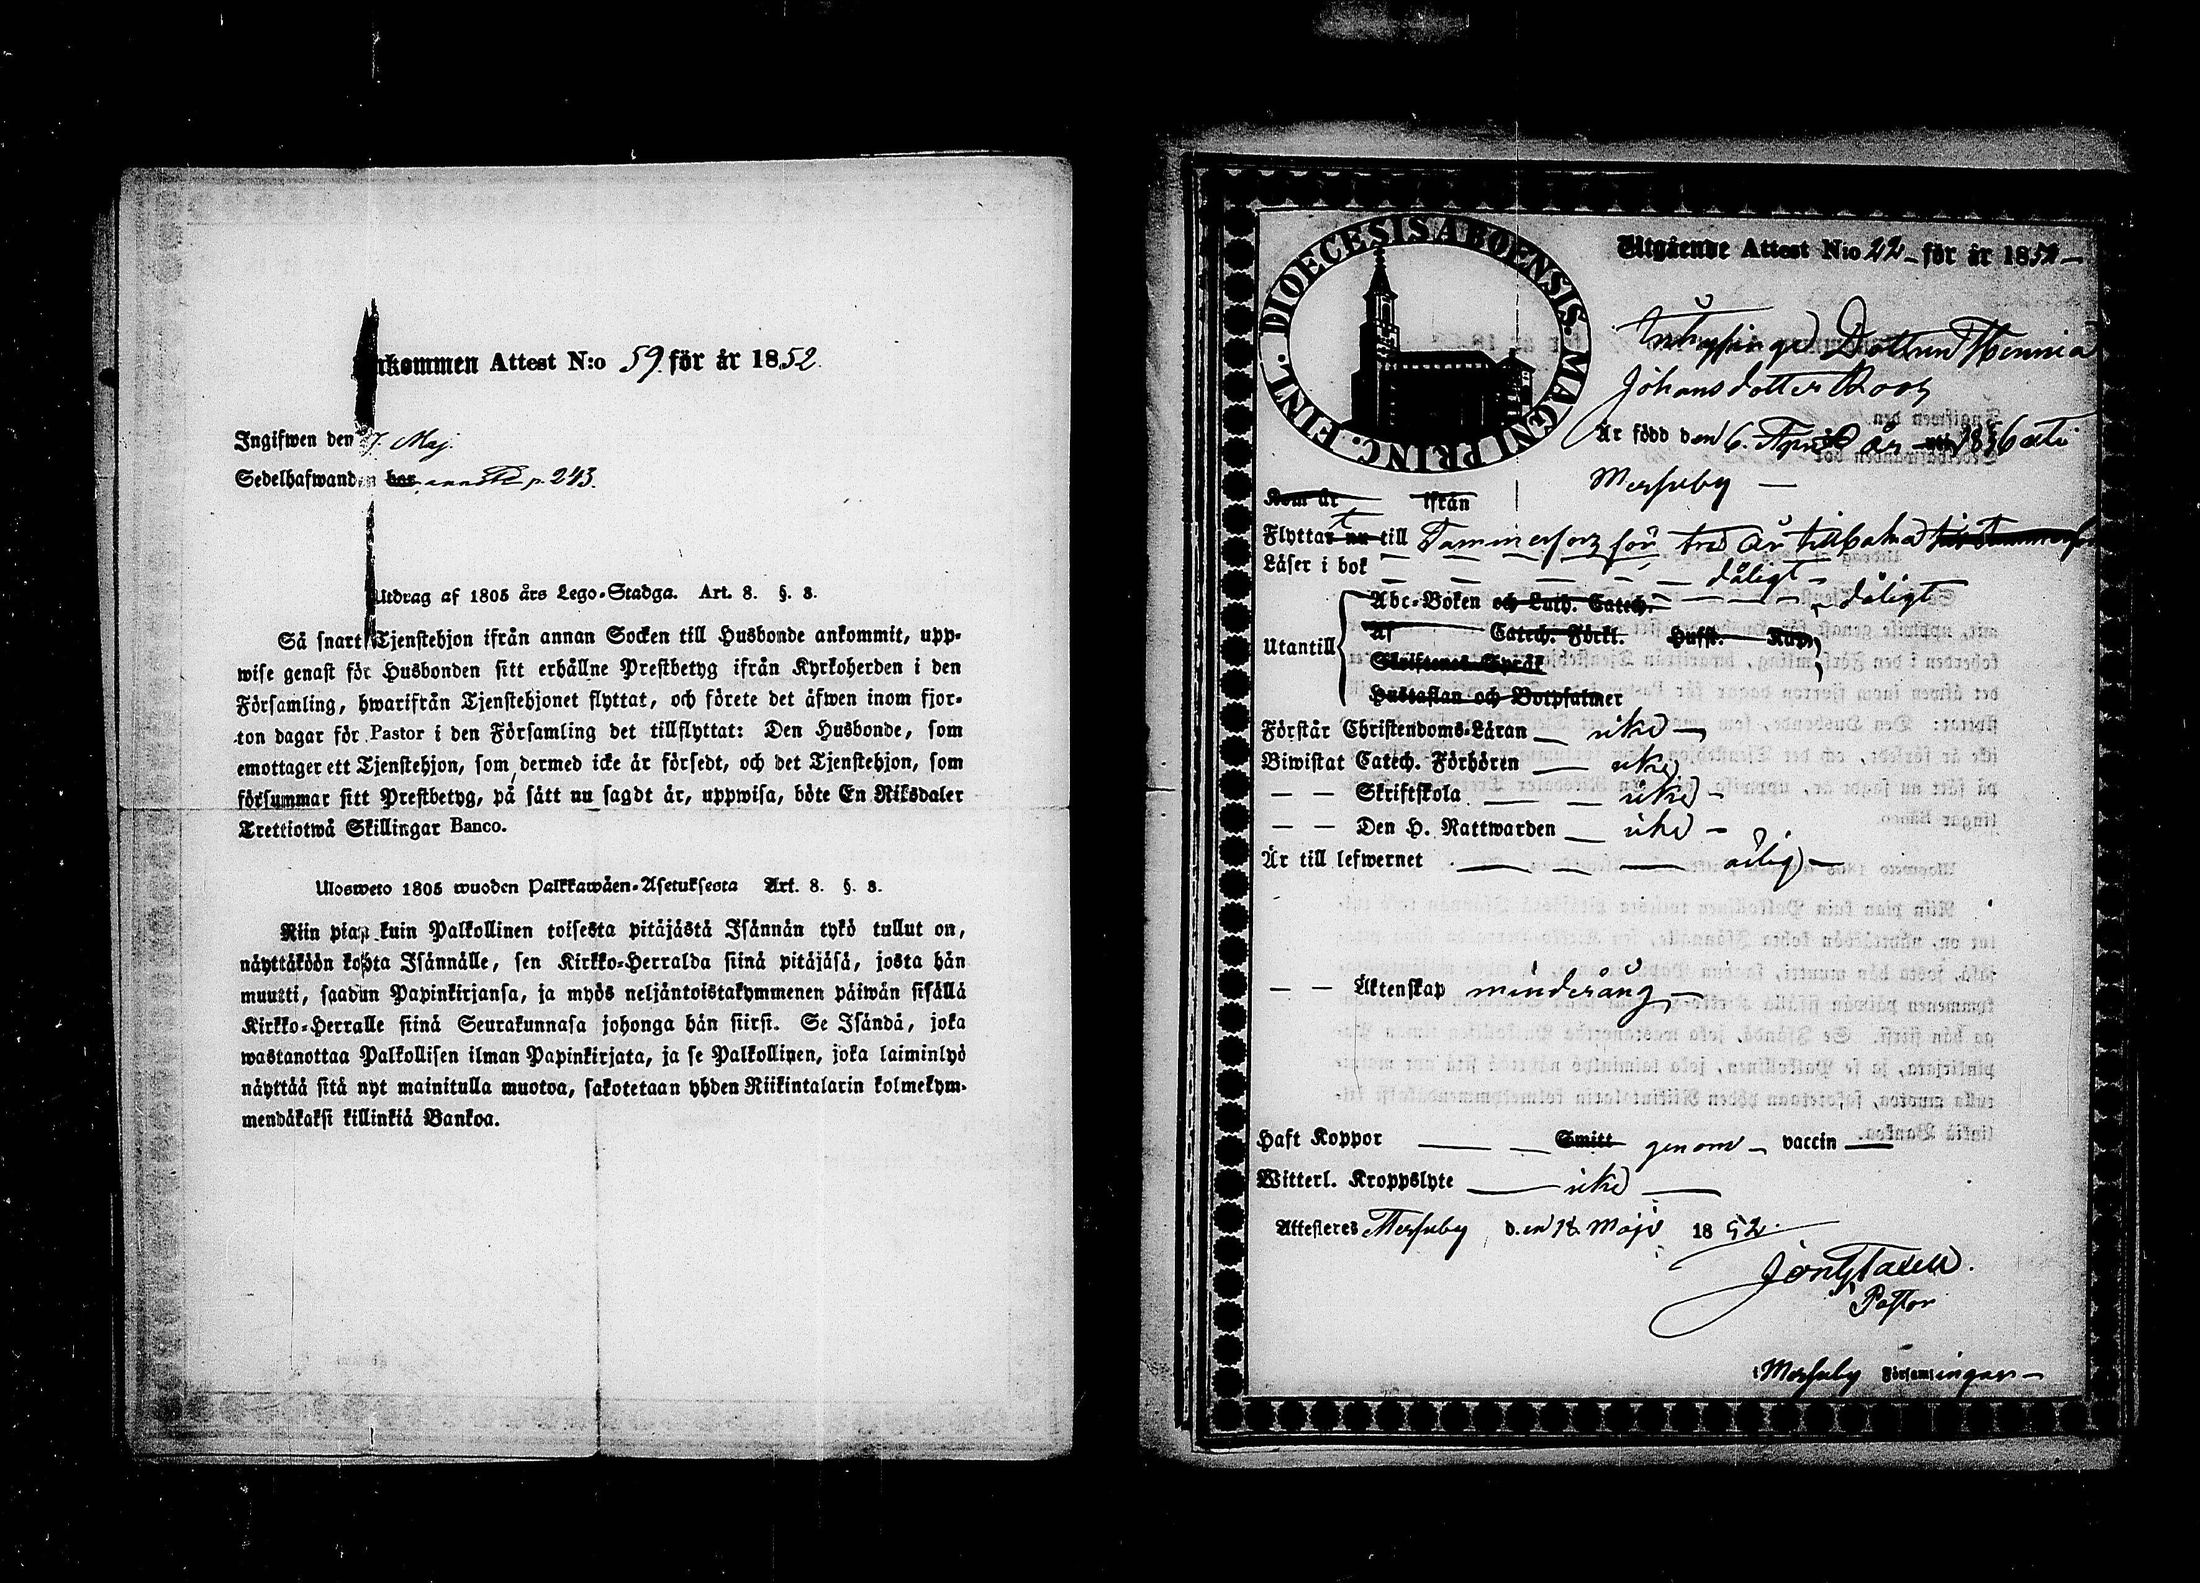 Ankommen Attest N:o 59 för år 1852.
Ingifwen den 7. Maj.
Sedelhafwanden bor p. 243.
Utdrag af 1805 års Lego-Stadga. Art. 8. §. 3.
Så snart Tjenstehjon ifrån annan Socken till Husbonde ankommit, upp-
wise genast för Husbonden sitt erhållne Prestbetyg ifrån Kyrkoherden i den
Församling, hwarifrån Tjenstehjonet flyttat, och förete det äfwen inom fjor-
ton dagar för Pastor i den Församling det tillflyttat: Den Husbonde, som
emottager ett Tjenstehjon, som dermed icke är försedt, och det Tjenstehjon, som
försummar sitt Prestbetyg, på sätt nu sagdt är, uppwisa, böte En Riksdaler
Trettiotwå Skillingar Banco.
Ulosweto 1805 wuoden Palkkawäen-Asetuksesta Art. 8. §. 3.
Niin pian kuin Palkollinen toisesta pitäjästä Isännän tykö tullut on,
näyttäköön kohta Isännälle, sen Kirkko-Herralda siinä pitäjäsä, josta hän
muutti, saadun Papinkirjansa, ja myös neljäntoistakymmenen päiwän sisällä
Kirkko-Herralle siinä Seurakunnasa johonga hän siirsi. Se Isändä, joka
wastanottaa Palkollisen ilman Papinkirjata, ja se Palkollinen, joka laiminlyö
näyttää sitä nyt mainitulla muotoa, sakotetaan yhden Riikintalarin kolmekym-
mendäkaksi killinkiä Bankoa.
DIOECESIS ABOENSIS. MAGNI PRINC. FINL.
Utgående Attest N:o 22 för år 1852
Dottren
Johansdotter
Är född den 6. April år 1836
Kom år ifrån
Flyttat nu till Tammerfors för tre År tillbaka
Läser i bok dåligt
Utantill
Abc-Boken och Luth. Catech. dåligt
Af Catech. Förkl. Hufst. Kap.
Skriftenes Språk
Hustaflan och Botpsalmer
Förstår Christendoms-Läran icke
Biwistat Catech. Förhören icke
— — Skriftskola icke
— — Den H. Nattwarden icke
Är till lefwernet ärlig
— — Äktenskap minderårig
Haft Koppor Smitt genom vaccin
Witterl. Kroppslyte icke
Attesteres d. en 18 Maji 1852.
Pastor
i Församlingar